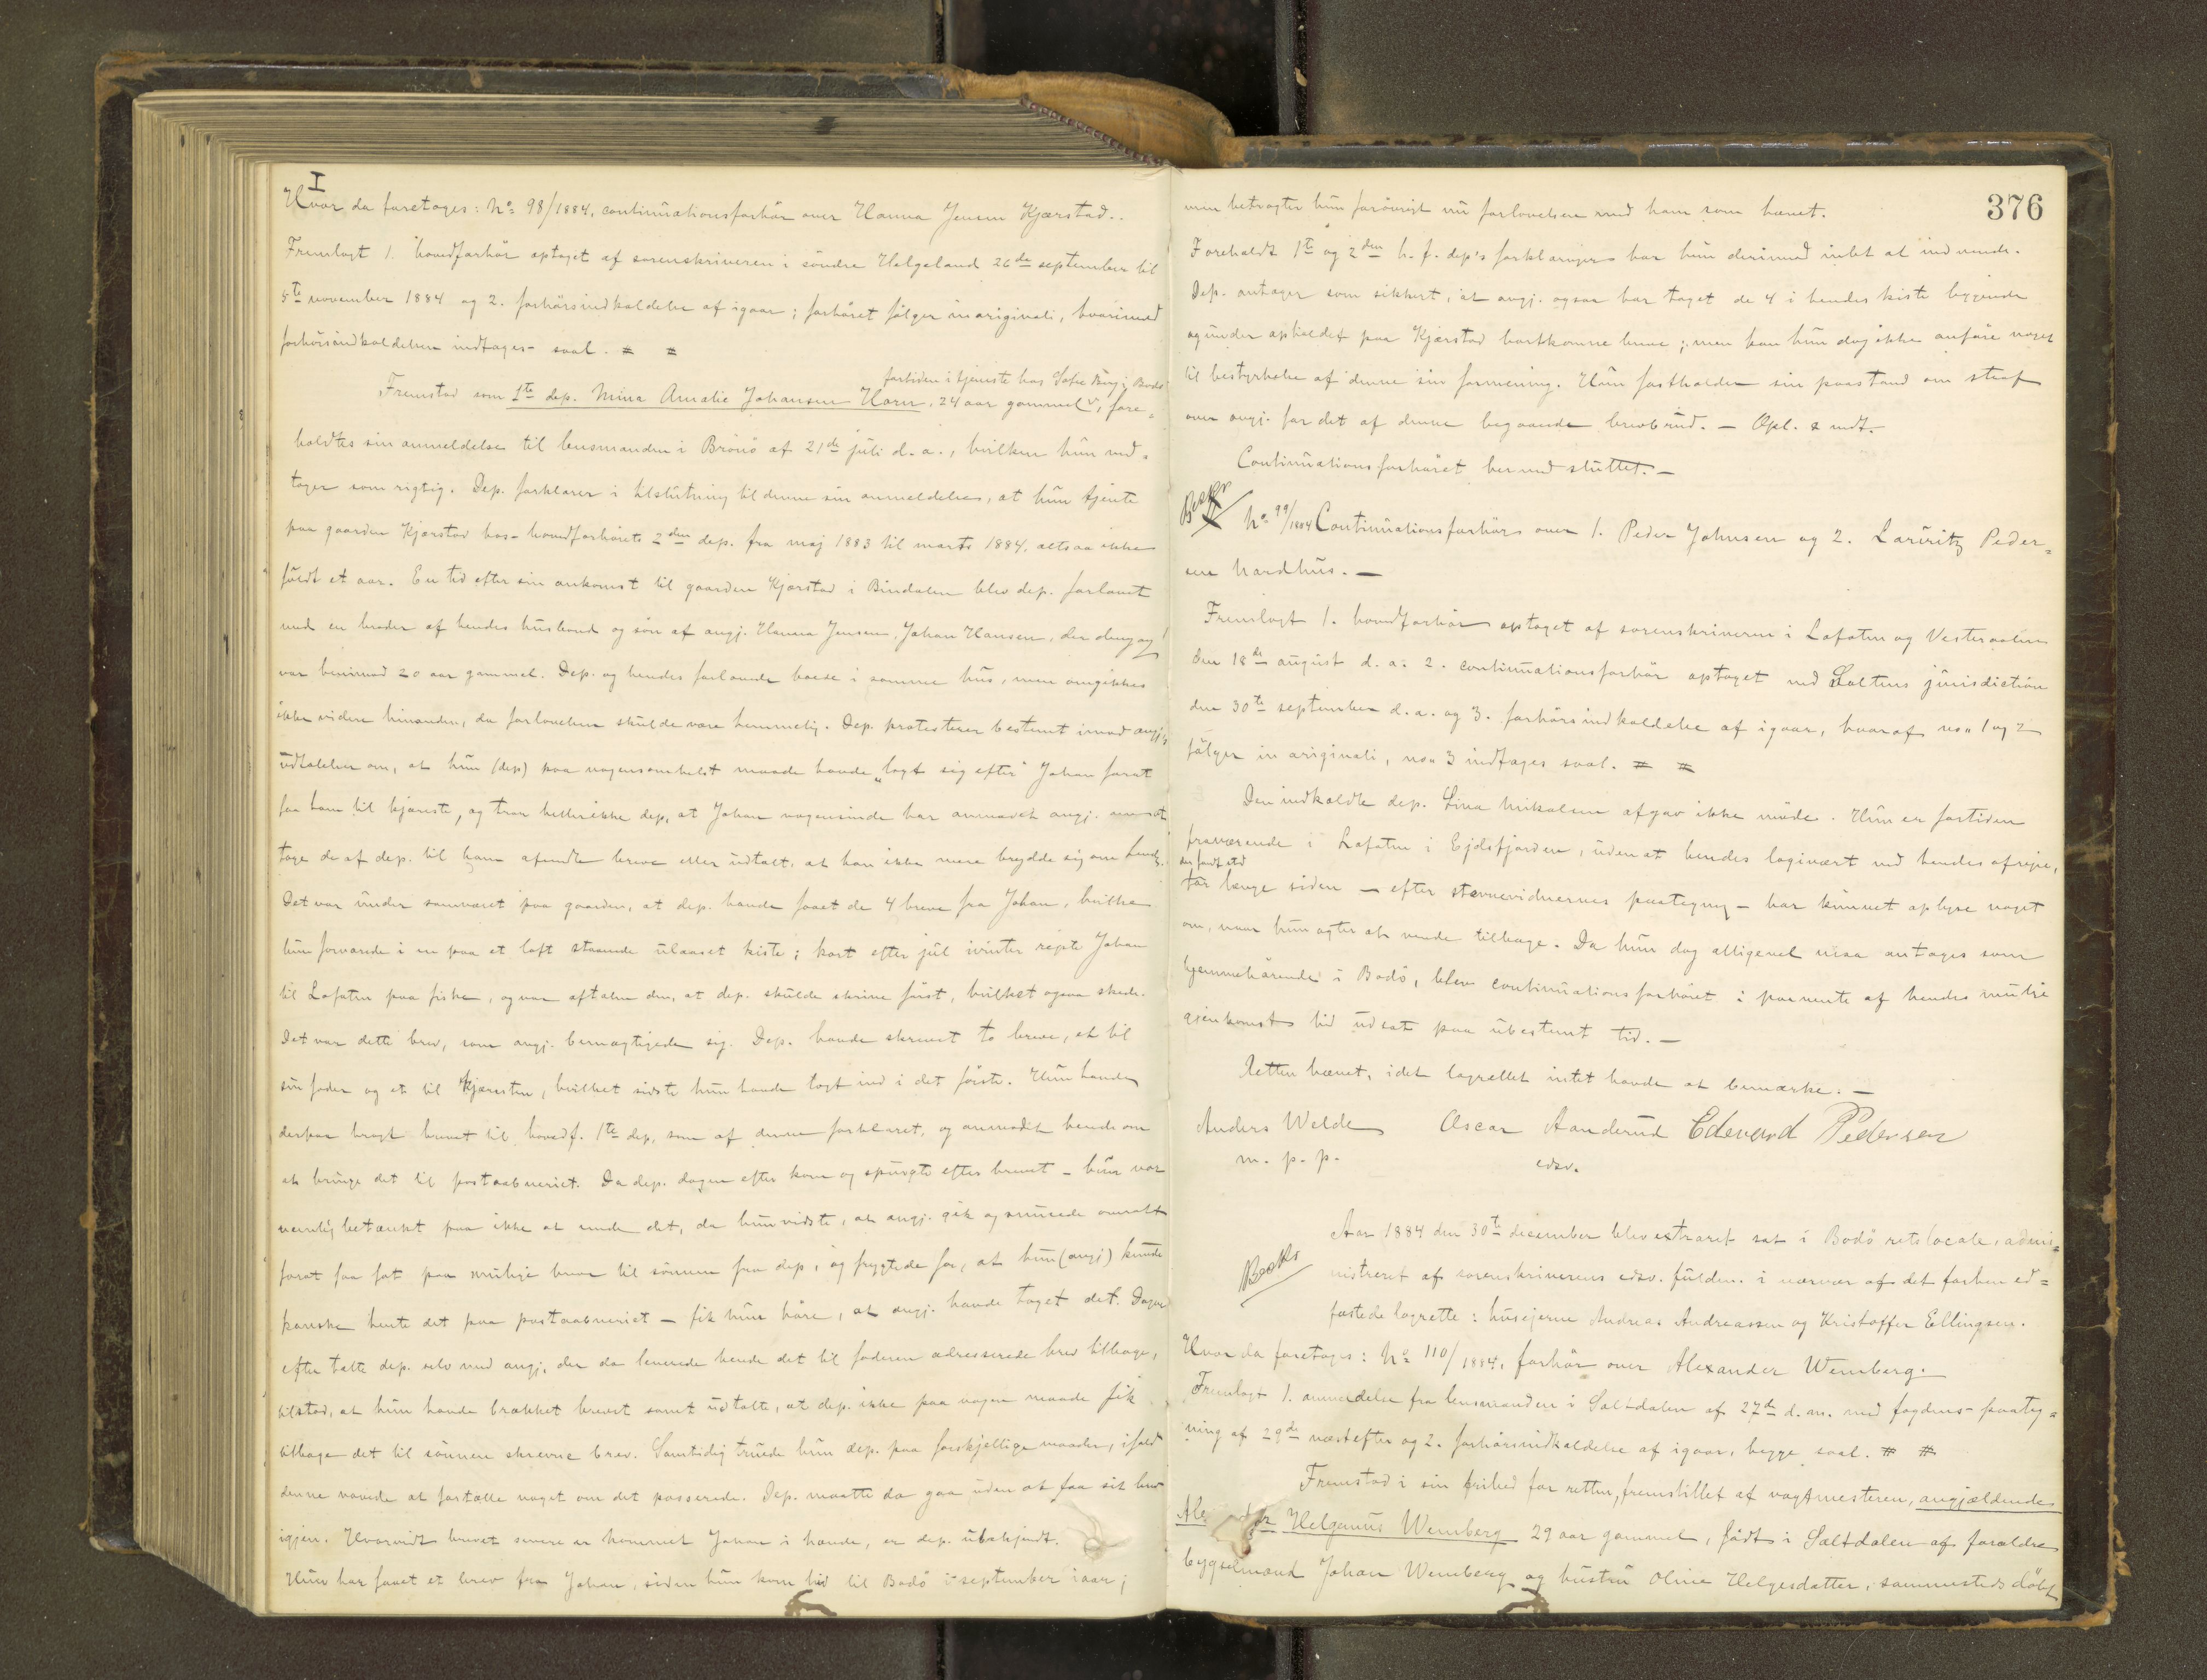 I
Hvor da foretoges: No 98/1884, continuationsforhör over Hanna Jensen Kjærstad..
Fremlagt 1. hovedforhör optaget af sorenskriveren i söndre Helgeland 26de september til
8te november 1884 og 2. forhörsindkaldelse af igaar; forhöret fölger in originali, hvorimod
forhörsindkaldelsen indtages saal. # #
fortiden i tjeneste hos Sofus Krog i Bodö
Fremstod som 1te dep. Mina Amalie Johansen Horn, 24 aar gammel, fore=
holdtes sin anmeldelse til lensmanden i Brönö af 21de juli d. a., hvilken hun ved=
tager som rigtig. Dep. forklarer i tilslutning til denne sin anmeldelse, at hun tjente
paa gaarden Kjærstad hos hovedforhörets 2den dep. fra maj 1883 til marts 1884, altsaa ikke
fuldt et aar. En tid efter sin ankomst til gaarden Kjærstad i Bindalen blev dep. forlovet
med en broder af hendes husbond og sön af angj. Hanna Jensen, Johan Hansen, der dengang
var henimod 20 aar gammel. Dep. og hendes forlovede boede i samme hus, men omgikkes
ikke videre hinanden, da forlovelsen skulde være hemmelig. Dep. protesterer bestemt imod angj's
udtalelser om, at hun (dep) paa nogensomhelst maade havde „lagt sig efter" Johan forat
faa ham til kjæreste, og tror hellerikke dep, at Johan nogensinde har anmodet angj. om at
tage de af dep. til ham afsendte breve eller udtalt, at han ikke mere brydde sig om hende.
Det var under samværet paa gaarden, at dep. havde faaet de 4 breve fra Johan, hvilke
hun forvarede i en paa et loft staaende ulaaset kiste; kort efter jul ivinter rejste Johan
til Lofoten paa fiske, og var aftalen den, at dep. skulde skrive först, hvilket ogsaa skede.
Det var dette brev, som angj. bemægtigede sig. Dep. havde skrevet to breve, et til
sin fader og et til kjæresten, hvilket sidste hun havde lagt ind i det förste. Hun havde
derpaa bragt brevet til hovedf. 1te dep, som af denne forklaret, og anmodet hende om
at bringe det til postaabneriet. Da dep. dagen efter kom og spurgte efter brevet – hun var
nemlig betænkt paa ikke at sende det, da hun vidste, at angj. gik og snusede omalt
forat faa fat paa mulige breve til sönnen fra dep, og frygtede for, at hun (angj) kunde
kanske hente det paa postaabneriet – fik hun höre, at angj. havde taget det. Dagen
efter talte dep. selv med angj, der da leverede hende det til faderen adresserede brev tilbage,
tilstod, at hun havde brækket brevet samt udtalte, at dep. ikke paa nogen maade fik
tilbage det til sönnen skrevne brev. Samtidig truede hun dep. paa forskjellige maader, ifald
denne vovede at fortælle noget om det passerede. Dep. maatte da gaa uden at faa sit brev
igjen. Hvorvidt brevet senere er kommet Johan i hænde, er dep. ubekjendt.
Hun har faaet et brev fra Johan, siden hun kom hid til Bodö i september iaar;
376
men betragter hun forövrigt nu forlovelsen med ham som hævet.
Foreholdt 1te og 2den h. f. dep's forklaringer har hun derimod intet at indvende.
Dep. antager som sikkert, at angj. ogsaa har taget de 4 i hendes kiste liggende
og under opholdet paa Kjærstad bortkomne breve; men kan hun dog ikke anföre noget
til bestyrkelse af denne sin formening. Hun fastholder sin paastand om straf
over angj. for det af denne begaaede brevbrud. – Opl. & vedt.
Continuationsforhöret hermed sluttet. –
Beskr
No 99/1884 Continuationsforhör over 1. Peder Johnsen og 2. Lauritz Peder=
sen Nordhus. –
Fremlagt 1. hovedforhör optaget af sorenskriveren i Lofoten og Vesteraalen
den 18de august d. a. 2. continuationsforhör optaget ved Saltens jurisdiction
den 30te september d. a. og 3. forhörsindkaldelse af igaar, hvoraf no. 1 og 2
fölger in originali, no. 3 indtages saal. # #
Den indkaldte dep. Lina Mikalsen afgav ikke möde. Hun er fortiden
fraværende i Lofoten i Ejdsfjorden, uden at hendes logivært ved hendes afrejse,
for længe siden – efter stevnevidnernes paategning – har kunnet oplyse noget
om, naar hun agter at vende tilbage. Da hun dog alligevel maa antages som
hjemmehörende i Bodö, blev continuationsforhöret i paavente af hendes mulige
gjenkomst hid udsat paa ubestemt tid. –
Retten hævet, idet lagrettet intet havde at bemærke. –
Anders Welde Oscar Aanderud Edevard Pedersen
m. p. p. edsv.
Beskr
Aar 1884 den 30te december blev extraret sat i Bodö retslocale, admi=
nistreret af sorenskriverens edsv. fuldm. i nærvær af det forhen ed=
fæstede lagrette: husejerne Andreas Andreassen og Kristoffer Ellingsen.
Hvor da foretoges: No 110/1884, forhör over Alexander Wemberg.
Fremlagt 1. anmeldelse fra lensmanden i Saltdalen af 27de d. m. med fogdens paateg=
ning af 29de næstefter og 2. forhörsindkaldelse af igaar, begge saal. # #
Fremstod i sin frihed for retten, fremstillet af vagtmesteren, angjældende
Ale der Helgenus Wemberg 29 aar gammel, födt i Saltdalen af forældre
bygselmand Johan Wemberg og hustru Oline Helgesdatter, sammesteds döbt